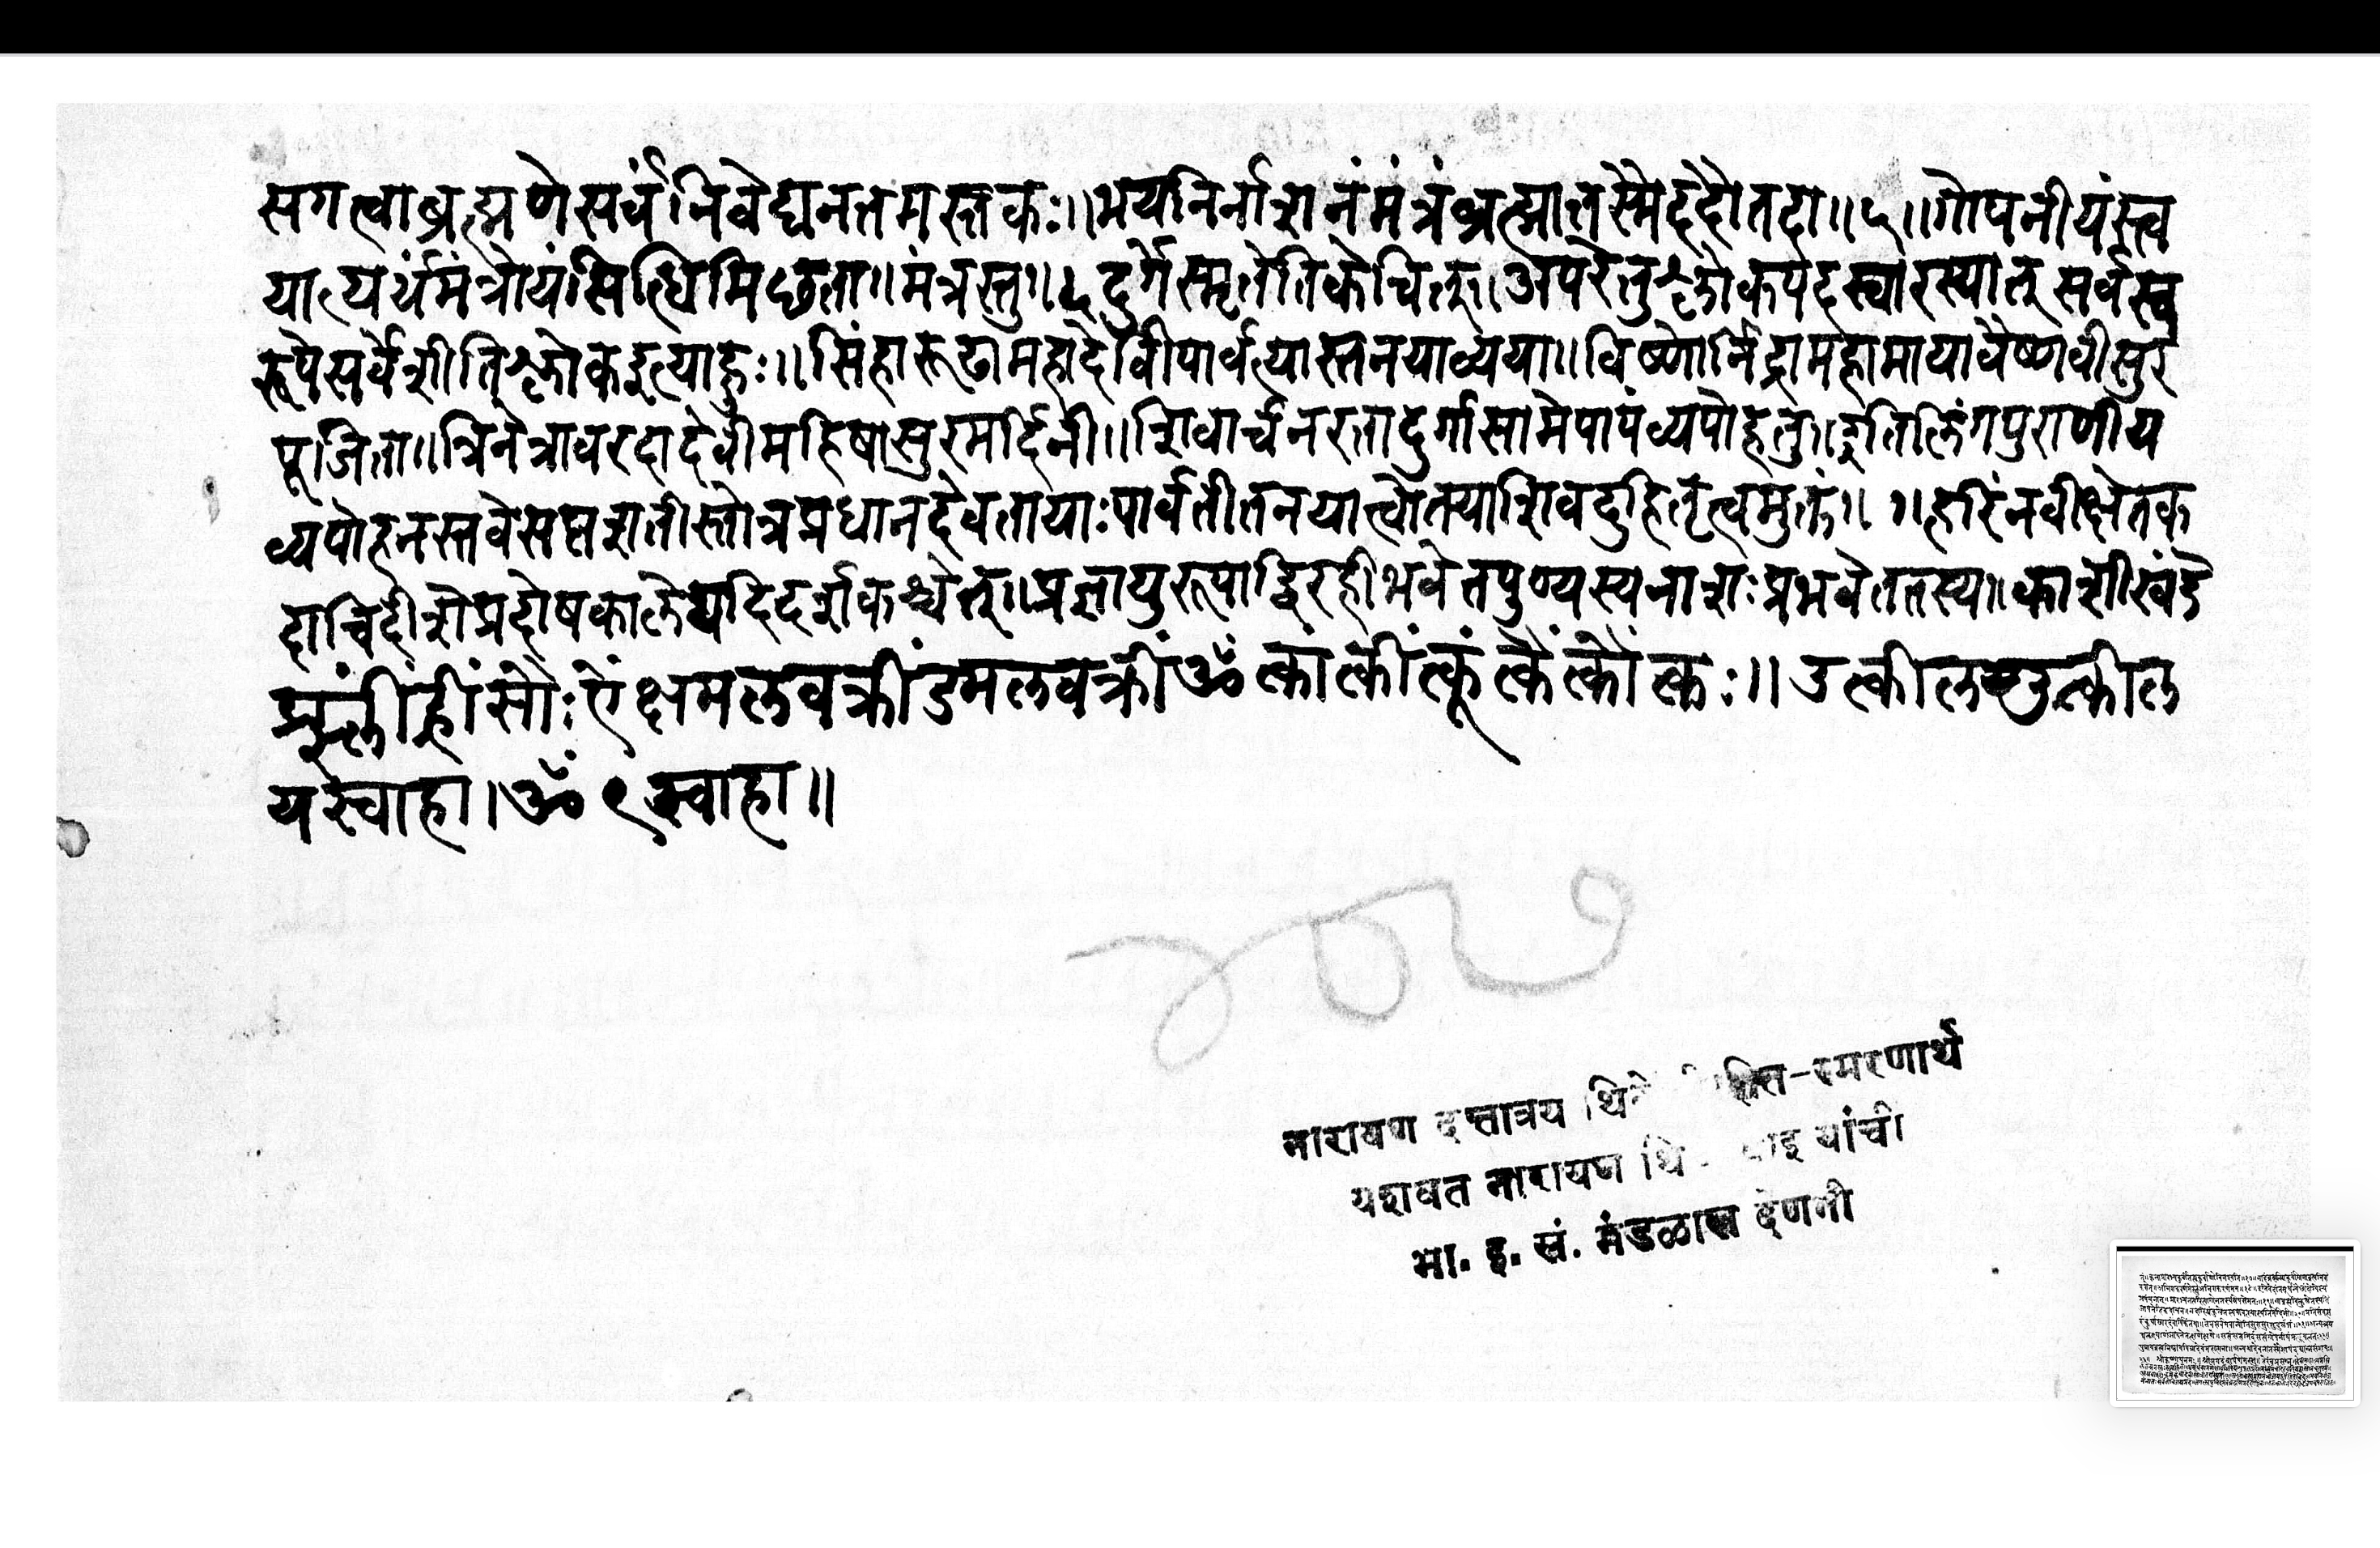 सगत्वाब्रह्मणेसर्वंनिवेद्यनतमस्तकः॥भयनिर्नाशनंमंत्रंब्रह्मातस्मैददौतदा॥५॥गोपनीयंस्त्व
यात्यर्थंमंत्रोयंसिद्धिमिछता॥मंत्रस्तु॥५दुर्गेस्मृतेतिकेचित्॥अपरेतुश्लोकपदस्वारस्यात्सर्वस्व
रूपेसर्वेशीतिश्लोकइत्याहुः॥सिंहारूढामहादेवीपार्वत्यास्तनयाव्यया॥विष्णोर्निद्रामहामायावैष्णवीसुर
पूजिता॥त्रिनेत्रावरदादेवीमहिषासुरमर्दिनी॥शिवार्चनरतादुर्गासामेपापंव्यपोहतु॥इतिलिंगपुराणीय
व्यपोहनस्तवेसप्तशतीस्तोत्रप्रधानदेवतायाःपार्वतीतनयात्वोक्त्याशिवदुहितृत्वमुक्तं॥ १॥हरिंनवीक्षेतक
दाचिदीशेप्रदोषकालेयदिदर्शकश्चेत्॥प्रज्ञायुरूपाद्विरहीभवेत्तपुण्यस्यनाशःप्रभवेततस्य॥काशीखंडे
ह्रींसौःऐंक्षमलवक्रींडमलवक्रींॐ त्कांत्कींत्कूंत्कैंत्कौंत्कः॥ उत्कीलयउत्कील
यस्वाहा।ॐ ९स्वाहा॥
४०७
नारायण दत्तात्रय स्मरणार्थ
यशवत नारायण यांची
भा. इ. सं. मंडळास देणगी